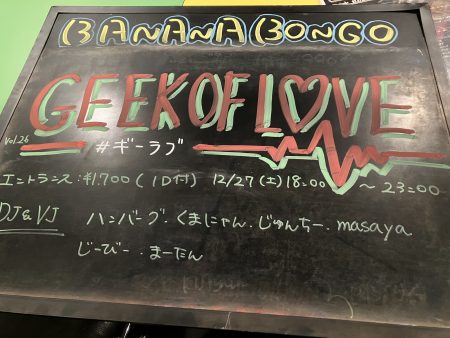 BANANA BONGO
GEEK OF LOVE
Vol.26
#ギーラブ
エントランス:¥1,700 (1D付) 12/27(土)18:00 〜 23:00
DJ&VJ ハンバーグ・くまにゃん・じゅんちー・masaya
じーびー・まーたん